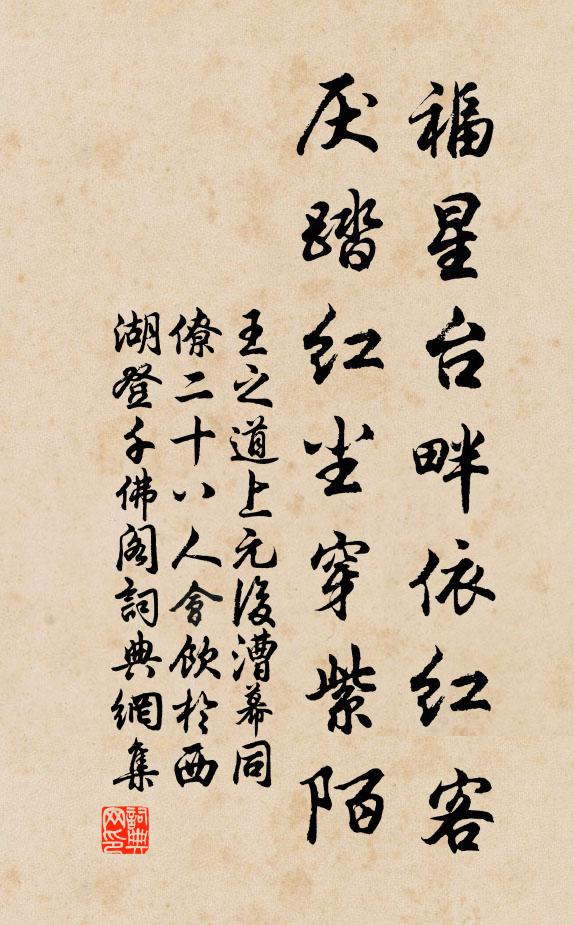 福星台畔依红客
厌踏红尘穿紫陌
王之道上元後漕幕同
僚二十八人會飲於西
湖登千佛阁詞典網集
詞典网印